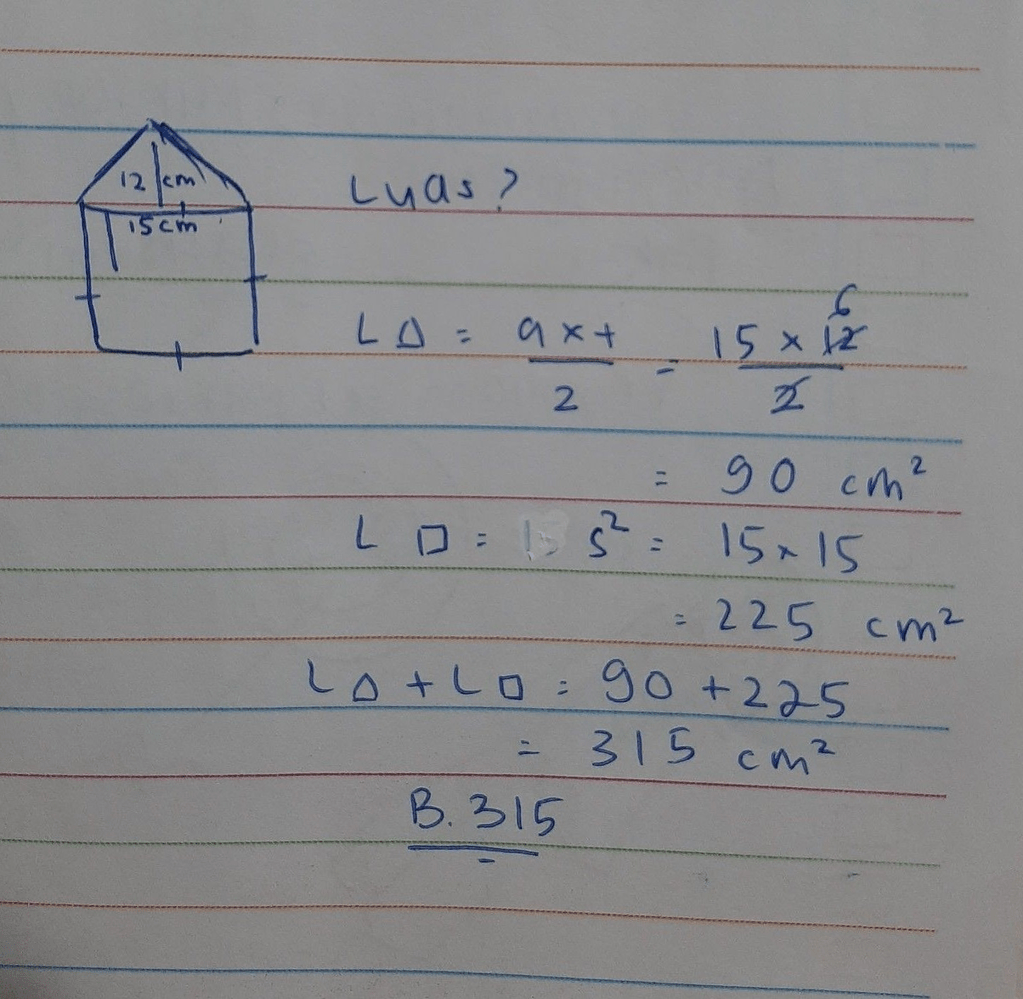 12 cm
15 cm
Luas?
L△ = a x t / 2 = 15 x 12 / 2
6
= 90 cm²
L □ = s² = 15 x 15
= 225 cm²
L△ + L□ = 90 + 225
= 315 cm²
B. 315